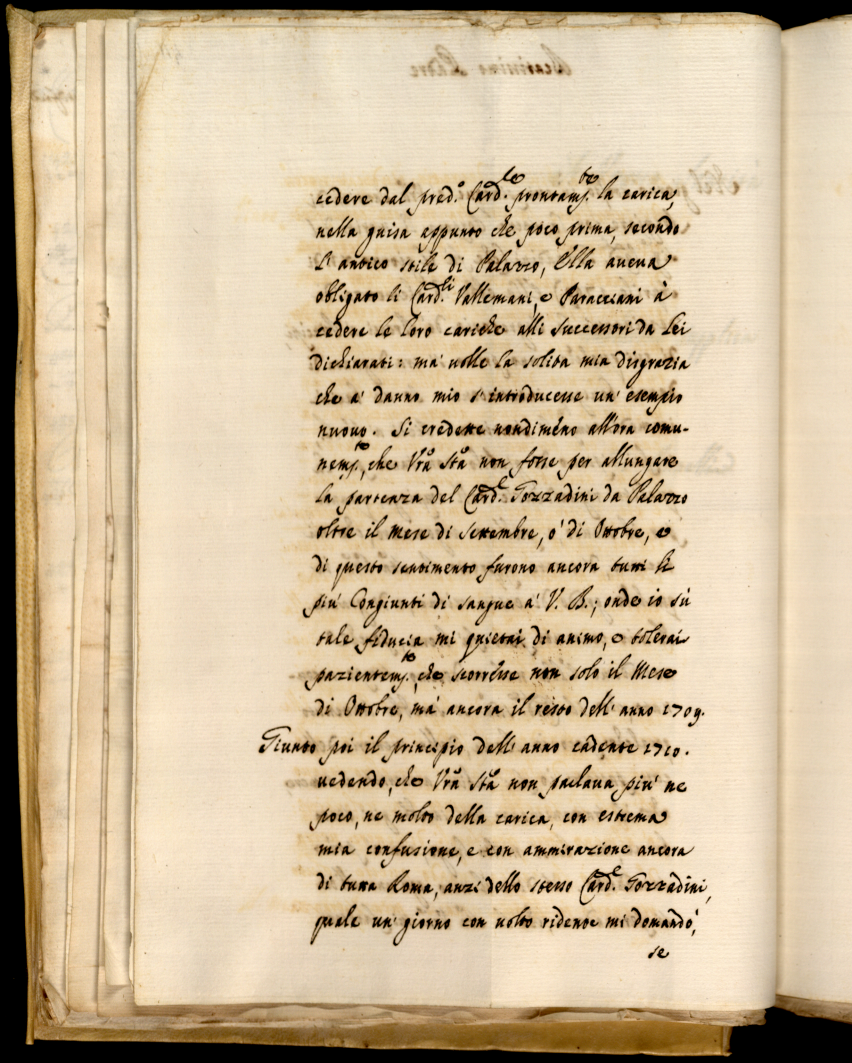 cedere dal pred.º Card.le prontam.te la carica,
nella guisa appunto che poco prima, secondo
l'antico stile di Palazzo, Ella aueua
obligato li Card.li Vallemani, e Paracciani à
cedere le loro cariche alli successori da Lei
dichiarati: ma' uolle la solita mia disgrazia
che a' danno mio s'introducesse un' esempio
nuouo. Si credette nondiméno all'ora comu-
nem.te, che Vrã Stã non fosse per allungare
la partenza del Card.e Gozzadini da Palazzo
oltre il Mese di Settembre, o' di Ottobre, e
di questo sentimento furono ancora tutti li
piu' Congiunti di sangue a' V. B.; onde io sù
tale fiducia mi quietai di animo, e tolerai
pazientem.te, che scorrésse non solo il Mese
di Ottobre, ma' ancora il resto dell' anno 1709.
Giunto poi il principio dell' anno cadente 1710.
uedendo, che Vrã Stã non parlaua piu' ne
poco, ne molto della carica, con estrema
mia confusione, e con ammirazione ancora
di tutta Roma, anzi dello stesso Card.e Gozzadini,
quale un' giorno con uolto ridente mi domandò,
se